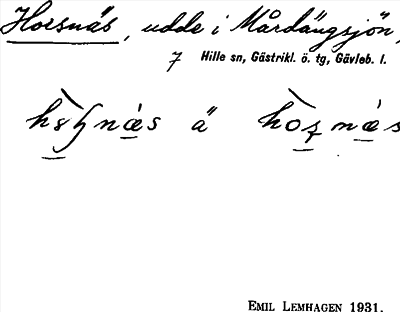 Horsnäs, udde i Mårdängsjön,
7 Hille sn, Gästrikl. ö. tg, Gävleb. l.
ä
EMIL LEMHAGEN 1931.